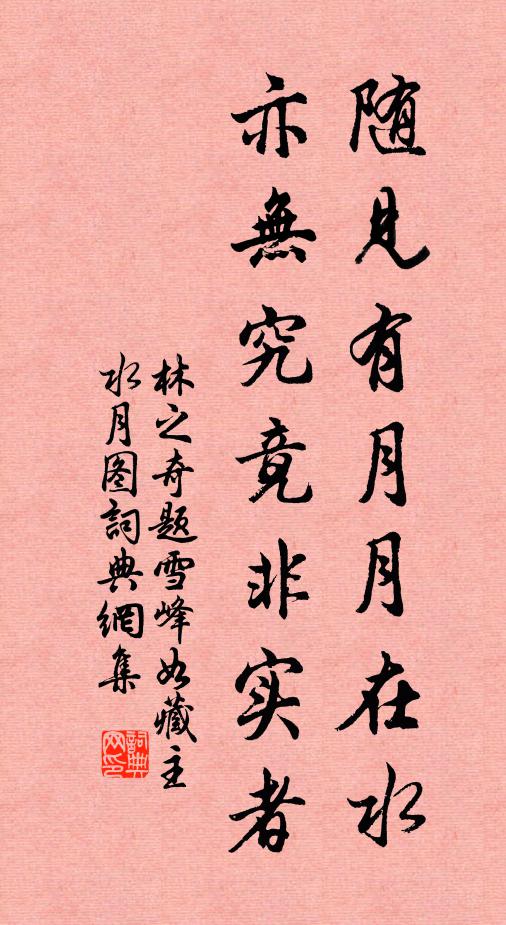 随见有月月在水
亦無究竟非实者
林之奇题雪峰如藏主
水月图詞典網集
詞典
网印